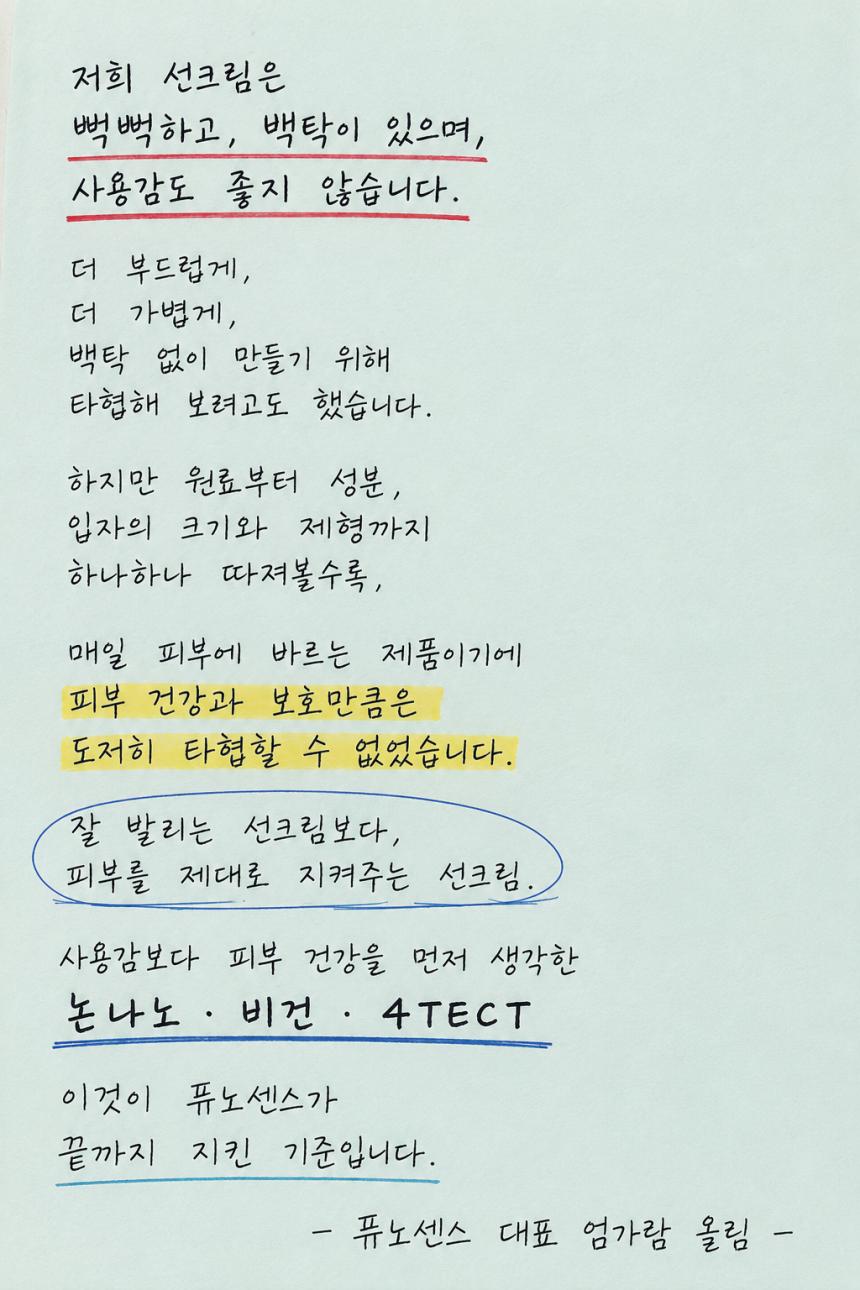 저희 선크림은
뻑뻑하고, 백탁이 있으며,
사용감도 좋지 않습니다.
더 부드럽게,
더 가볍게,
백탁 없이 만들기 위해
타협해 보려고도 했습니다.
하지만 원료부터 성분,
입자의 크기와 제형까지
하나하나 따져볼수록,
매일 피부에 바르는 제품이기에
피부 건강과 보호만큼은
도저히 타협할 수 없었습니다.
잘 발리는 선크림보다,
피부를 제대로 지켜주는 선크림.
사용감보다 피부 건강을 먼저 생각한
논나노 · 비건 · 4TECT
이것이 퓨노센스가
끝까지 지킨 기준입니다.
- 퓨노센스 대표 엄가람 올림 -